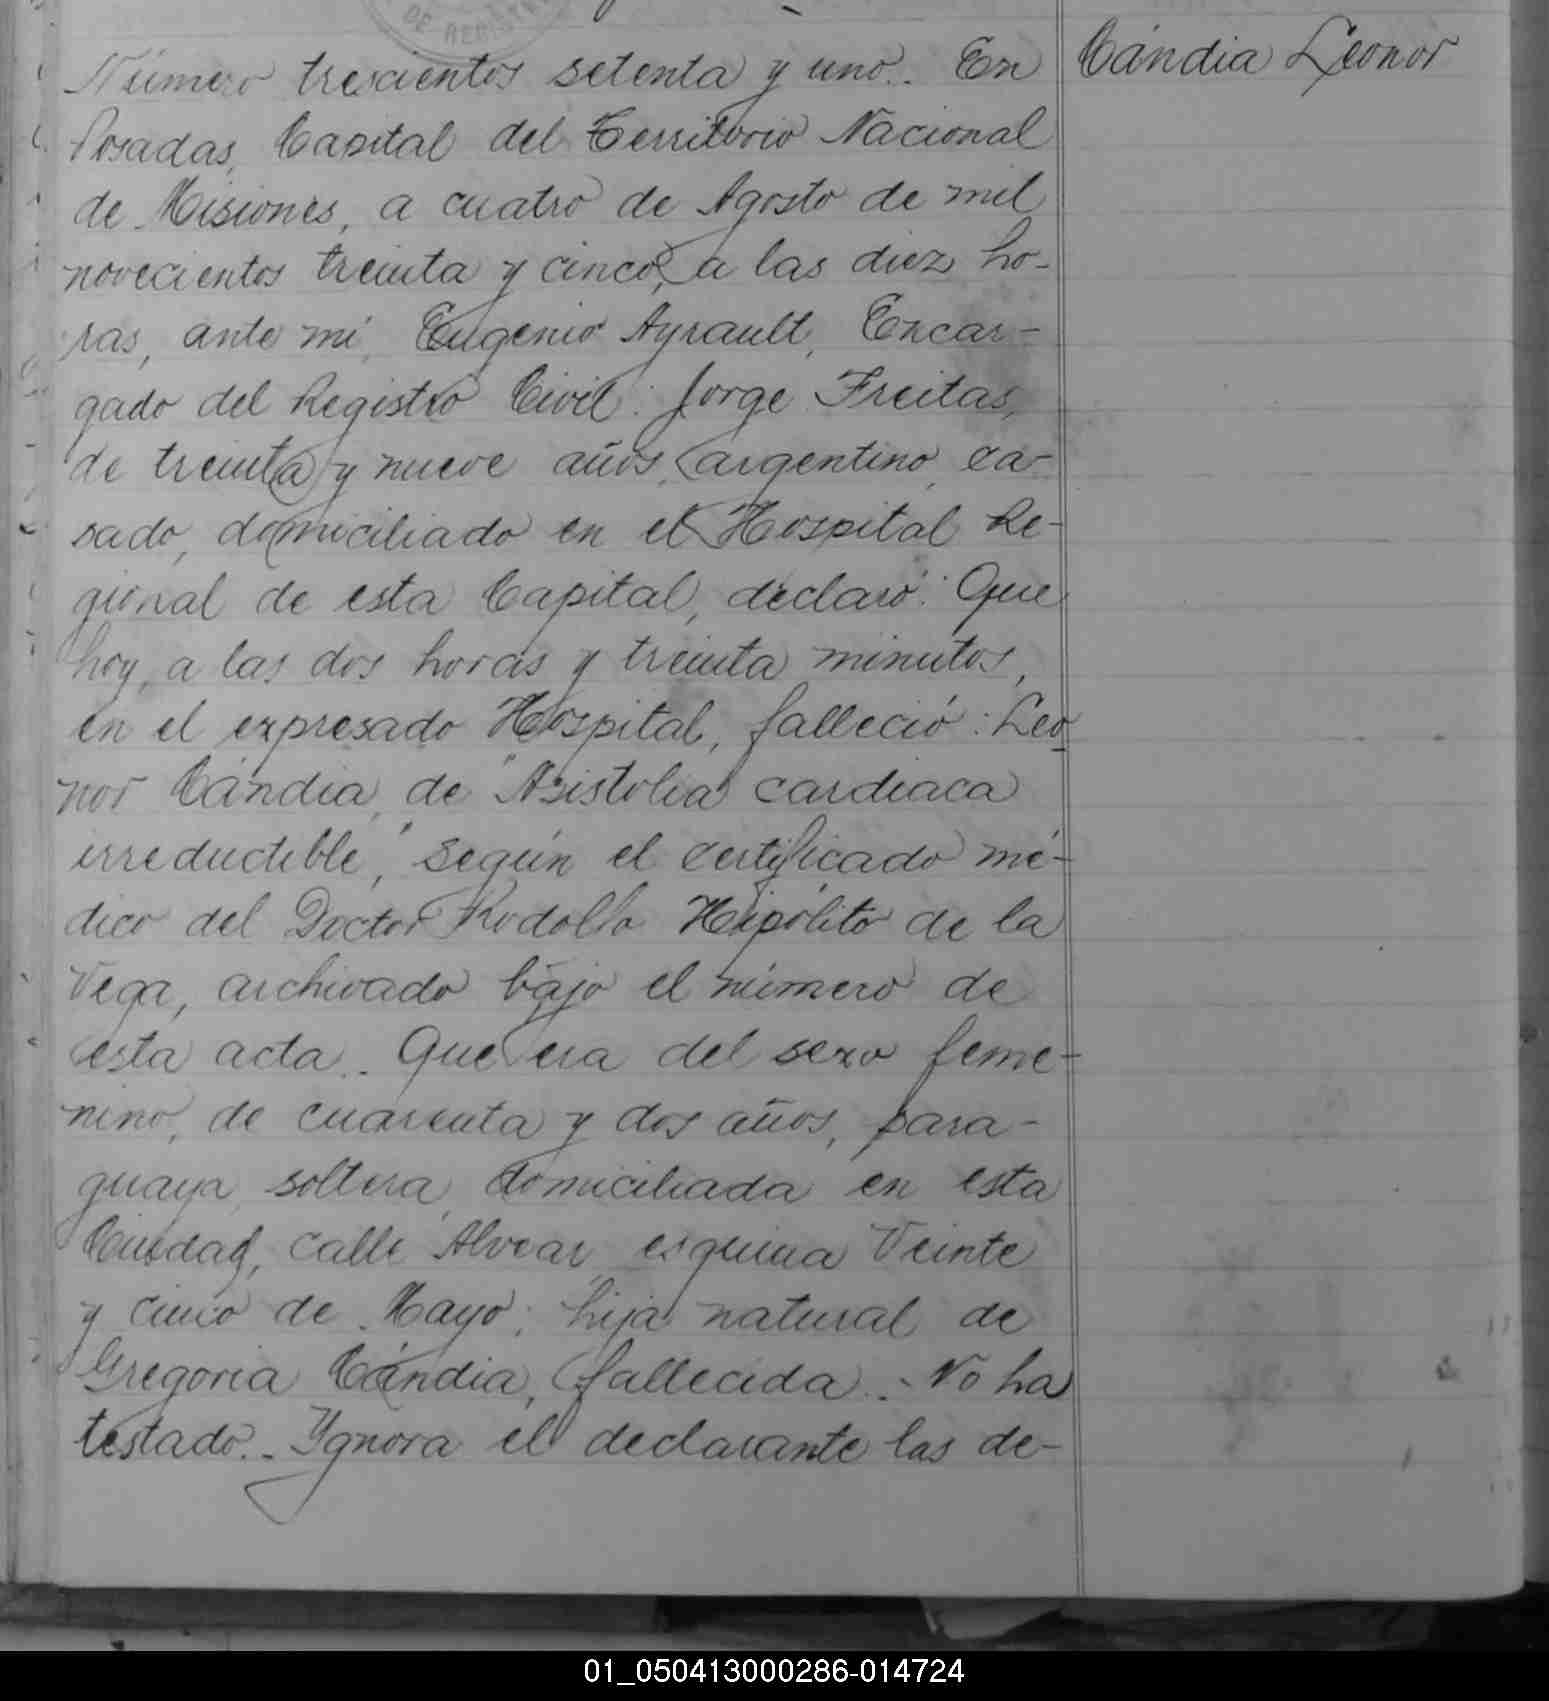 DE REGISTR
Número trescientos setenta y uno.. En
Posadas, Capital del Territorio Nacional
de Misiones, a cuatro de Agosto de mil
novecientos treinta y cinco, a las diez ho-
ras, ante mí, Eugenio Ayrault, Encar-
gado del Registro Civil: Jorge Freitas,
de treinta y nueve años, argentino, ca-
sado, domiciliado en el Hospital Re-
gional de esta Capital, declaró: Que
hoy, a las dos horas y treinta minutos,
en el expresado Hospital, falleció: Leo
nor Cándia, de "Asistolia cardiaca
irreductible," según el certificado mé-
dico del Doctor Rodolfo Hipólito de la
Vega, archivado bajo el número de
esta acta.. Que era del sexo feme-
nino, de cuarenta y dos años, para-
guaya, soltera, domiciliada en esta
Ciudad, calle Alvear, esquina Veinte
y cinco de Mayo; hija natural de
Gregoria Cándia, fallecida.- No ha
testado.- Ygnora el declarante las de-
Cándia Leonor
01_050413000286-014724